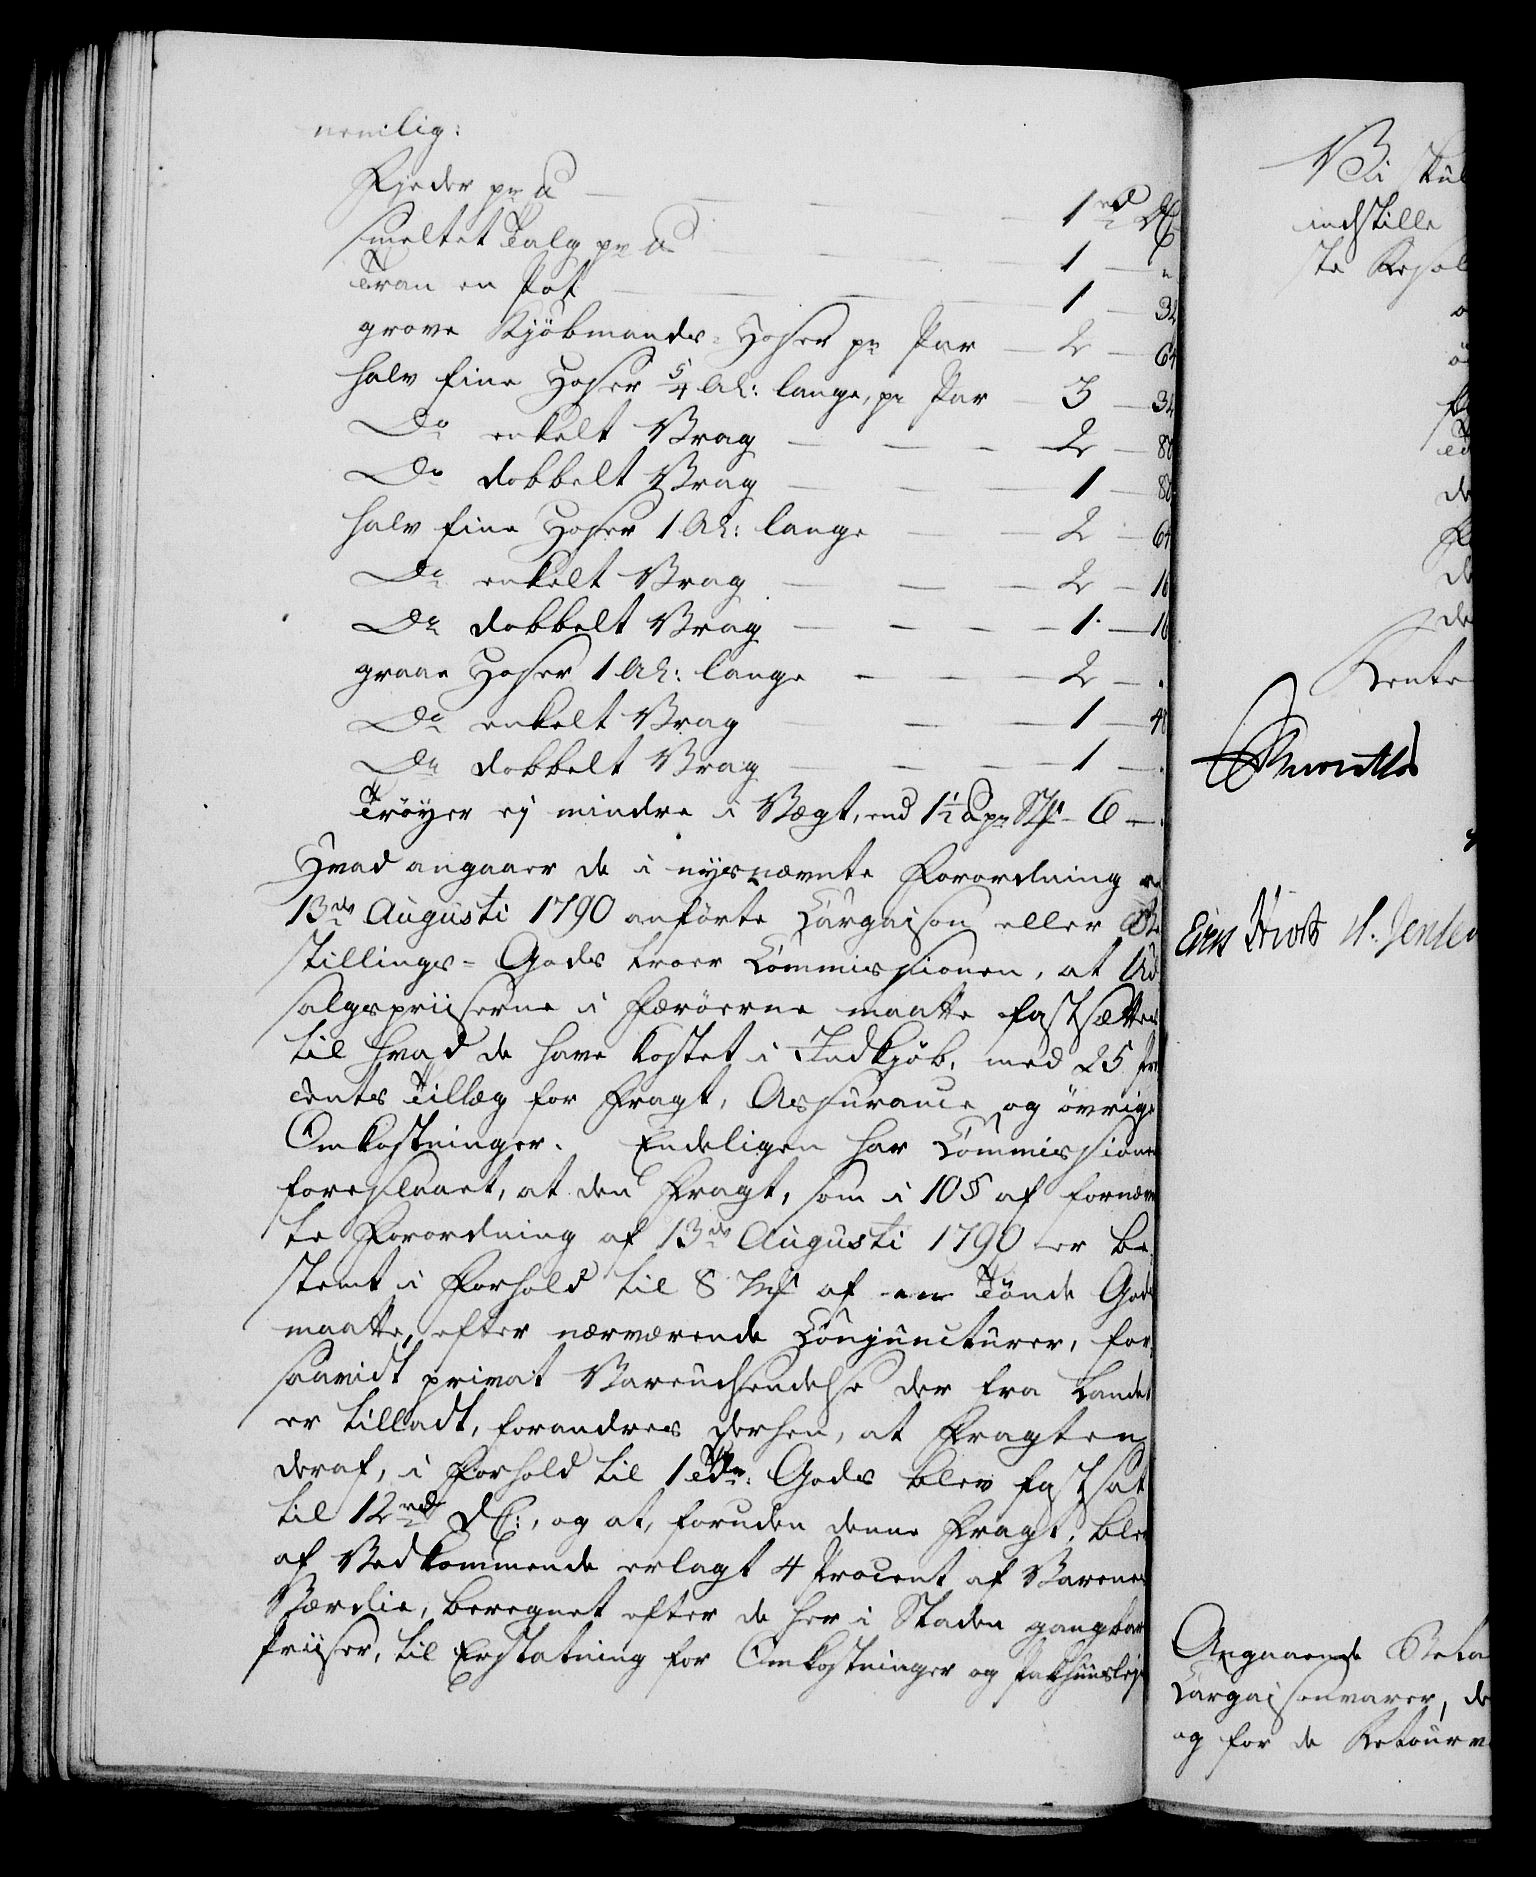 nemlig:
Fjeder pr ℔ 1 rd DC
smeltet Talg pr ℔ 1 "
Tran en Pot 1 32
grove Kjöbmands-Hoser pr Par 2 64
halv fine Hoser 5/4 Al: lange, pr Par 3 32
Do enkelt Vrag 2 80
Do dobbelt Vrag 1 80
halv fine Hoser 1 Al: lange 2 64
Do enkelt Vrag 2 16
Do dobbelt Vrag 1 16
graae Hoser 1 Al: lange 2
Do enkelt Vrag 1 48
Do dobbelt Vrag 1
Tröyer ej mindre i Vægt, end 1½ ℔ pr St. 6
Hvad angaaer de i nysnævnte Forordning
13de Augusti 1790 anförte Cargaison eller Be
stillings-Gods troer Commissionen, at Ud
salgspriiserne i Færöerne maatte fastsættes
til hvad de have kostet i Indkjöb, med 25 Pro
cents Tillæg for Fragt, Assurance og övrige
Omkostninger. Endeligen har Commissionen
foreslaaet, at den Fragt, som i 10 § af fornævn
te Forordning af 13de Augusti 1790 er be
stemt i Forhold til 8 Mk af en Tönde Gods
maatte, efter nærværende Conjuncturer, for
saavidt privat Vareudsendelse der fra Landet
er tilladt, forandres derhen, at Fragten
deraf, i Forhold til 1 Tde: Gods blev fastsat
til 12 rd DC:, og at, foruden denne Fragt, blev
af Vedkommende erlagt 4 Procent af Varenes
Værdie, beregnet efter de her i Staden gangbare
Priiser, til Erstatning for Omkostninger og Pakhuusleje
Vi skul
indstille
ste Resol
de
de
de
Rente
Eiers H. Jensen
Angaaende Beta
Cargaisonvarer, de
og for de Retourva